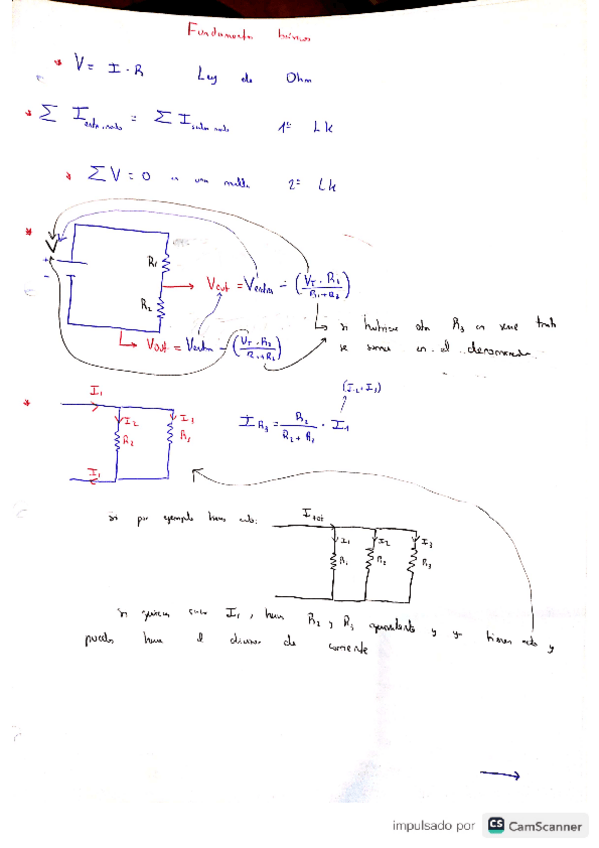 Fundamentos básicos
* V = I · R Ley de Ohm
* Σ I entra nodo = Σ I sale nodo 1ª LK
* ΣV = 0 en una malla 2ª LK
*
V
+
-
R1
R2
Vout = Ventra - (VT · R1 / R1 + R2)
si hubiese otra R3 en serie
se suma en el denominador
Vout = Ventra - (VT · R2 / R1 + R2)
*
I1
I2
I3
R2
R3
I1
(I2 + I3)
I R3 = R2 / R2 + R3 · I1
si por ejemplo
Itot
I1
I2
I3
R1
R2
R3
si quieres I1, R2 y R3 equivalente y ya tienes esto y
puedes hacer el divisor de corriente
impulsado por CS CamScanner